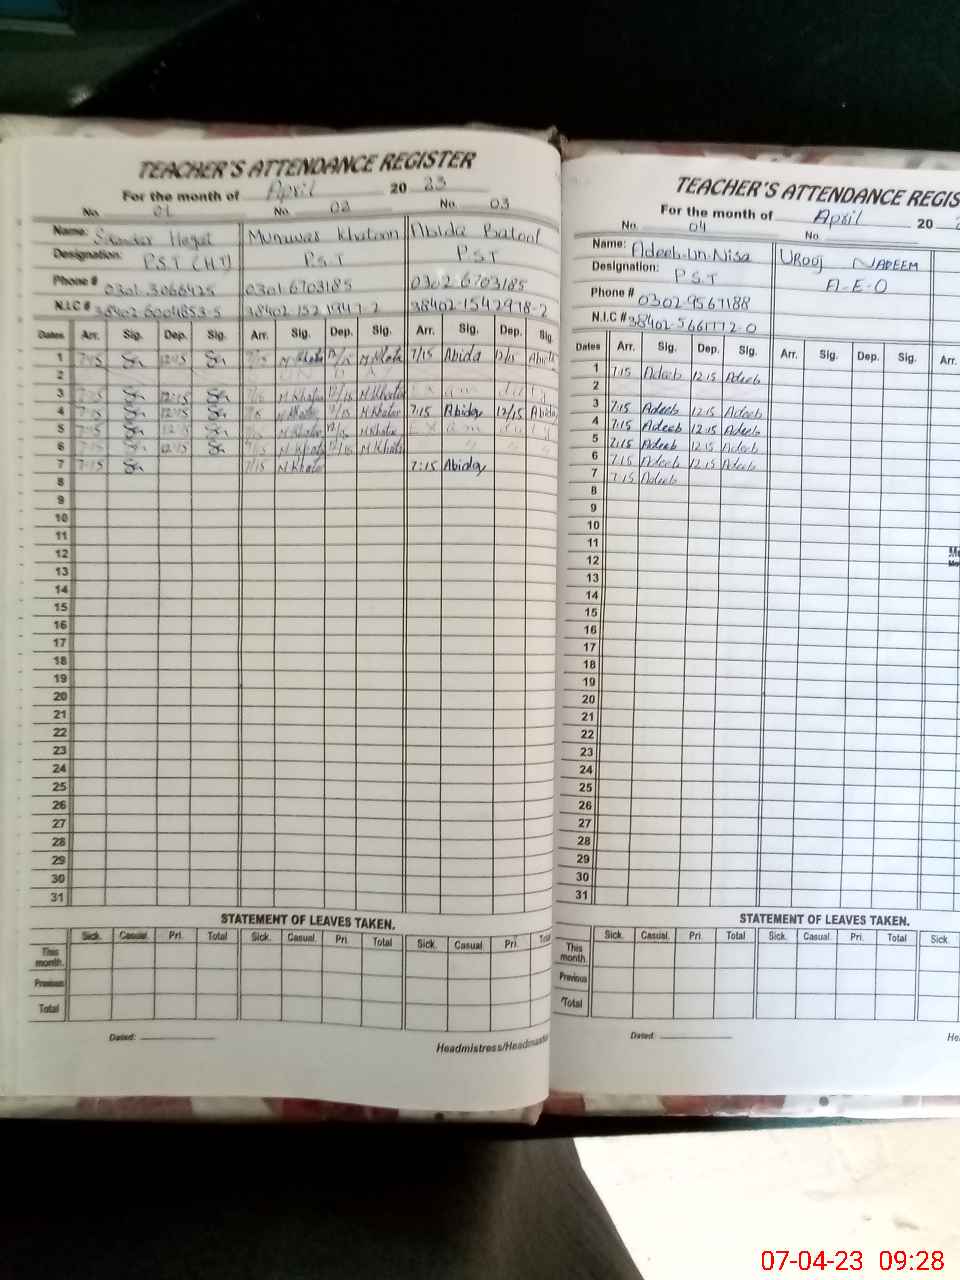 TEACHER'S ATTENDANCE REGISTER
For the month of April 20 23
No. 01 No. 02 No. 03
Name: Hayat Munawar Khatoon Abida Batool
Designation: P.S.T (H.T) P.S.T P.S.T
Phone # 0301.3066425 0301.6703185 0302.6703185
N.I.C # 38402-1542978-2
Dates Arr. Sig. Dep. Sig. Arr. Sig. Dep. Sig. Arr. Sig. Dep. Sig.
1 7:15 12:15 7/15 M.Khato 12/15 M.Khato 7/15 Abida 12/15 Abida
2
3 7:15 12:15 7/15 M.Khato 12/15 M.Khato Exam duty
4 7:15 12:15 7/15 M.Khato 12/15 M.Khato 7:15 Abida 12/15 Abida
5 7:15 12:15 7/15 M.Khato 12/15 M.Khato Exam duty
6 7:15 12:15 7/15 M.Khato 12/15 M.Khato " "
7 7:15 7/15 M.Khato 7:15 Abida
8
9
10
11
12
13
14
15
16
17
18
19
20
21
22
23
24
25
26
27
28
29
30
31
STATEMENT OF LEAVES TAKEN.
Sick. Casual. Pri. Total Sick. Casual. Pri. Total Sick. Casual Pri. Total
This month.
Previous
Total
Dated:
Headmistress/Headmaste
TEACHER'S ATTENDANCE REGIS
For the month of April 20
No. 04 No.
Name: Adeeb-Un-Nisa Urooj Nadeem
Designation: P.S.T A-E-O
Phone # 0302.9567188
N.I.C # 38402-5661772-0
Dates Arr. Sig. Dep. Sig. Arr. Sig. Dep. Sig. Arr.
1 7:15 Adeeb 12:15 Adeeb
2
3 7:15 Adeeb 12:15 Adeeb
4 7:15 Adeeb 12:15 Adeeb
5 7:15 Adeeb 12:15 Adeeb
6 7:15 Adeeb 12:15 Adeeb
7 7:15 Adeeb
8
9
10
11
12
13
14
15
16
17
18
19
20
21
22
23
24
25
26
27
28
29
30
31
STATEMENT OF LEAVES TAKEN.
Sick. Casual. Pri. Total Sick. Casual. Pri. Total Sick.
This month.
Previous
Total
Dated:
He
07-04-23 09:28